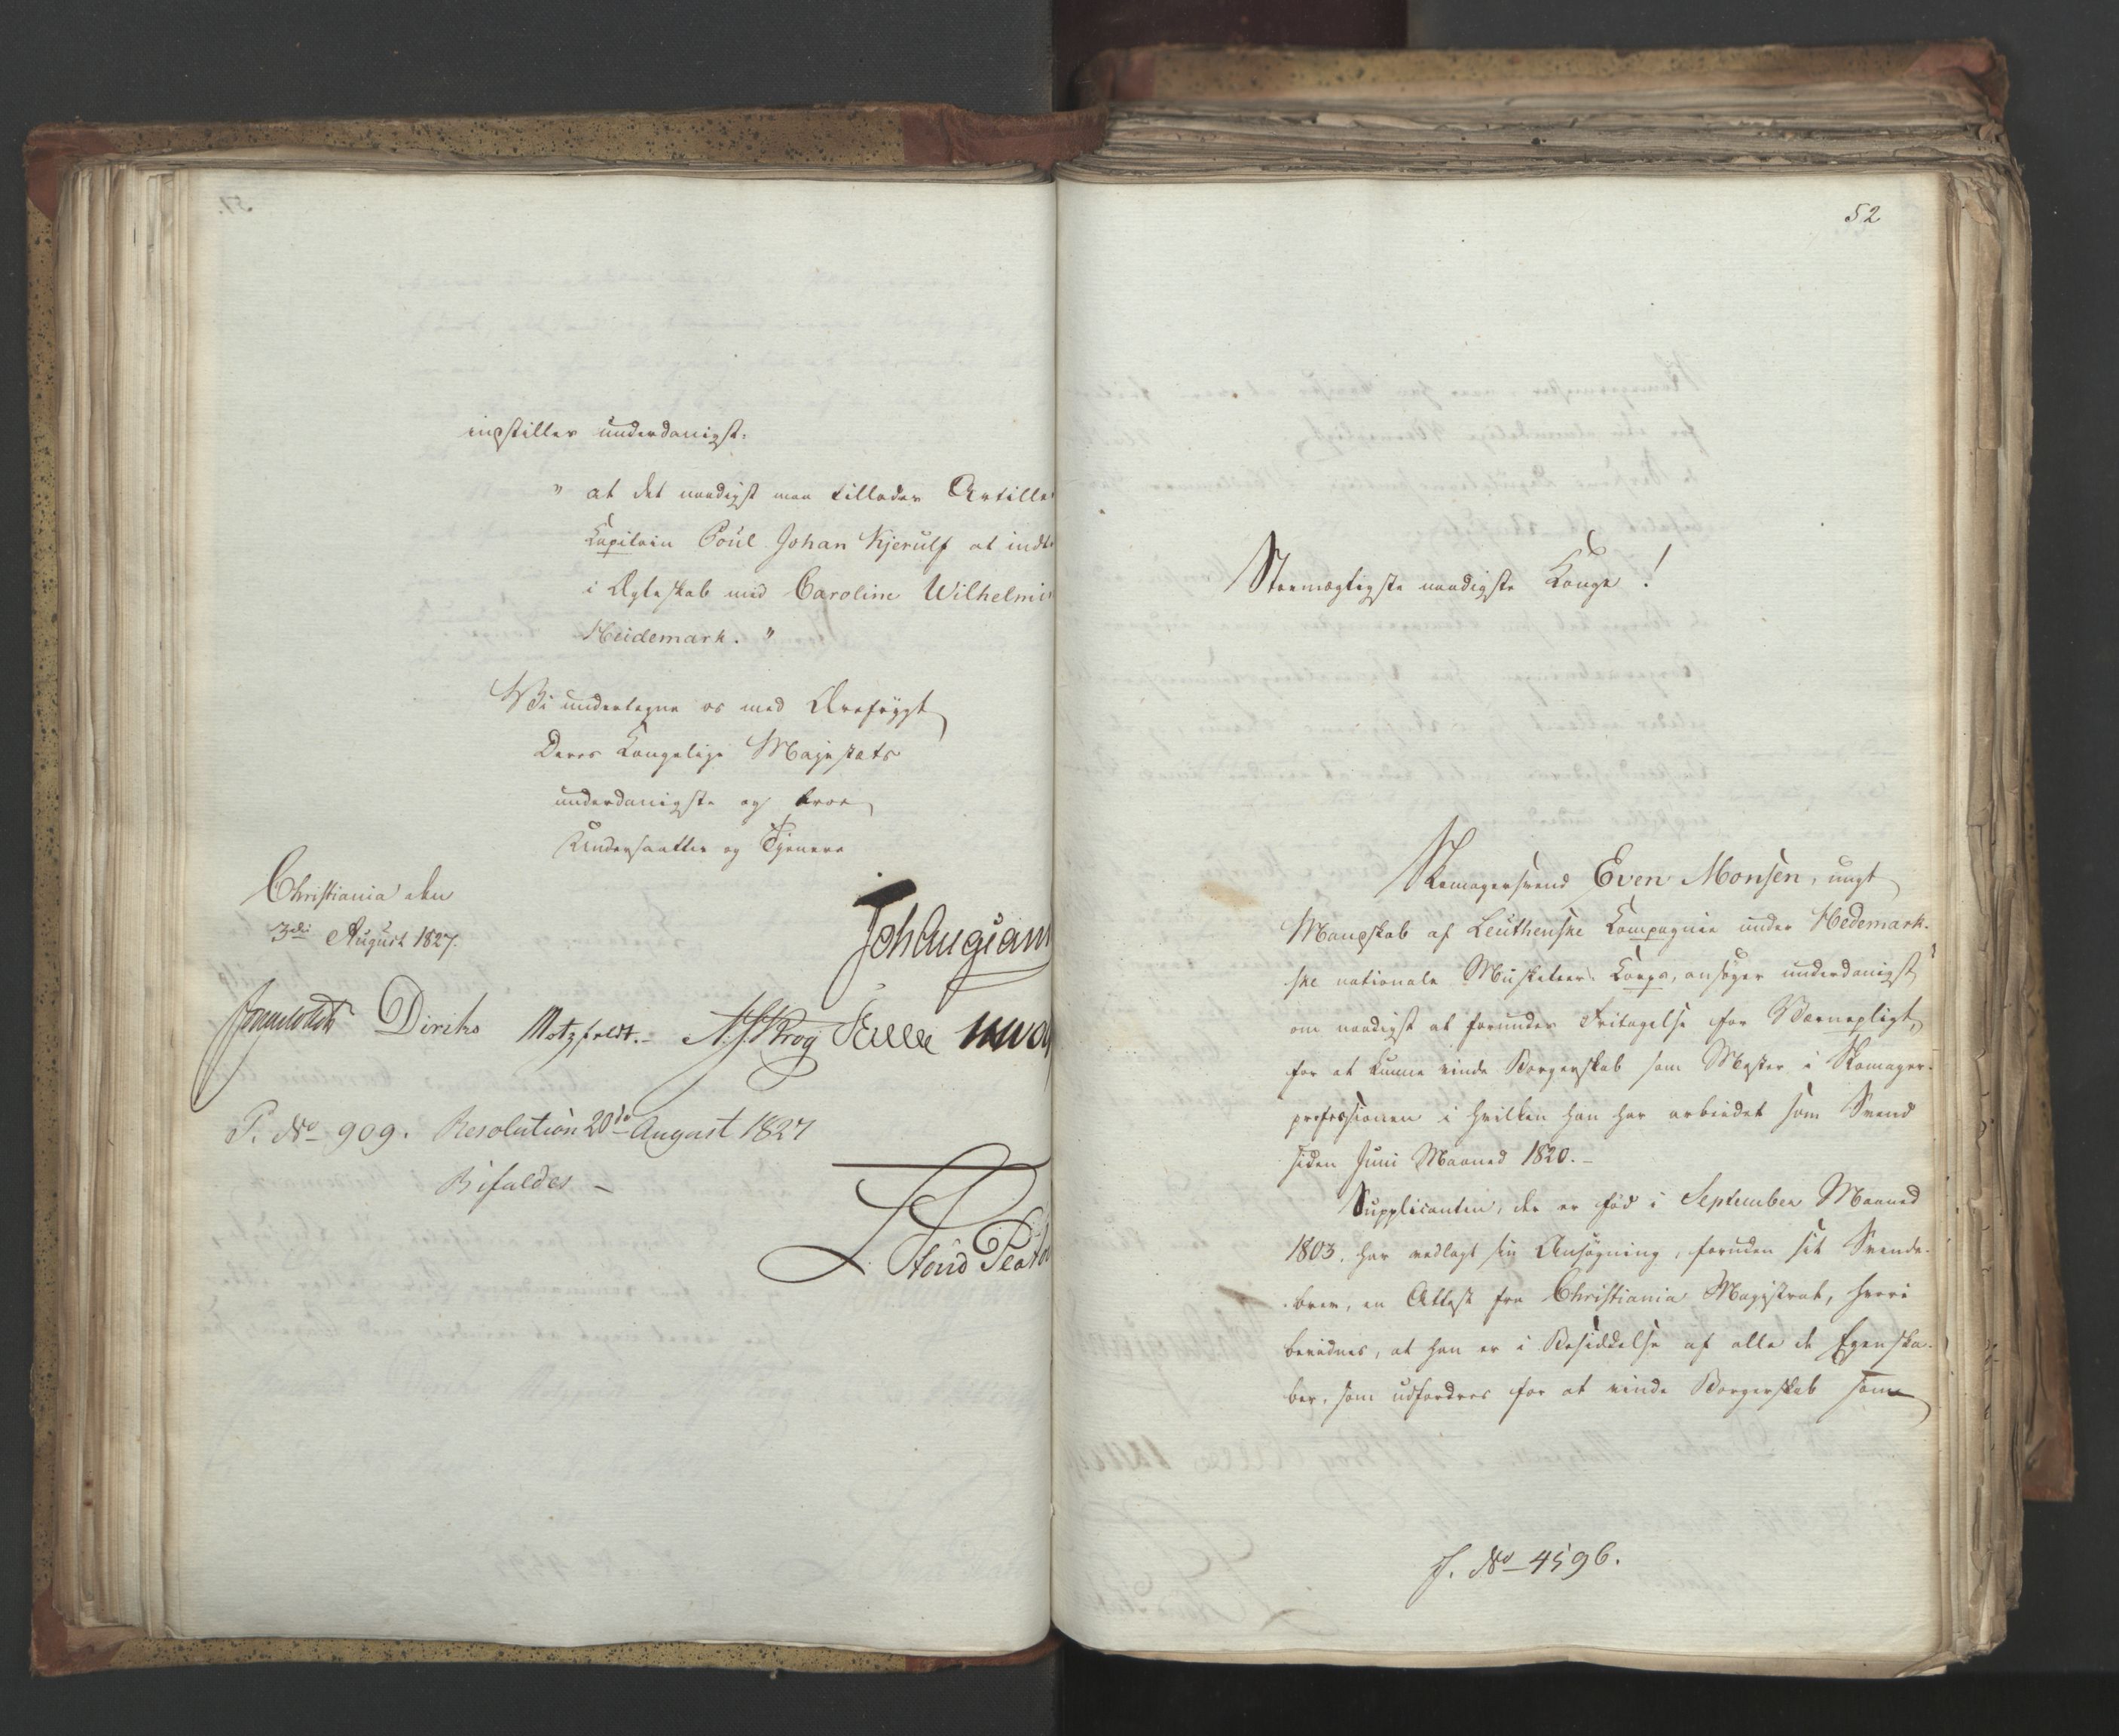 indstilles underdanigst:
" at det naadigst maa tillades Artille
Kapitain Poul Johan Kjerulf at indt
i Ægteskab med Caroline Wilhelmi
Heidemark. "
Vi undertegne os med Ærefrygt
Deres Kongelige Majestæts
underdanigste og troe
Undersaatter og Tjenere
Christiania den
3die August 1827.
Joh Aug Sand
Diriks Motzfeldt. N. J. Krog
P. No 909. Resolution 20de August 1827
Bifaldes -
52
Stormægtigste naadigste Konge!
Skomagersvend Even Monsen, ungt
Mandskab af Leuthenske Kompagnie under Hedemark-
ske nationale Musketeer-Korps, ansøger underdanigst
om naadigst at forundes Fritagelse for Værnepligt,
for at kunne vinde Borgerskab som Mester i Skomager-
professionen i hvilken han har arbeidet som Svend
siden Juni Maaned 1820. -
Supplicanten, der er fød i September Maaned
1803, har vedlagt sin Ansøgning, foruden sit Svende-
brev, en Attest fra Christiania Magistrat, hvori
bevidnes, at han er i Besiddelse af alle de Egenska-
ber, som udfordres for at vinde Borgerskab som
J. No 4596.